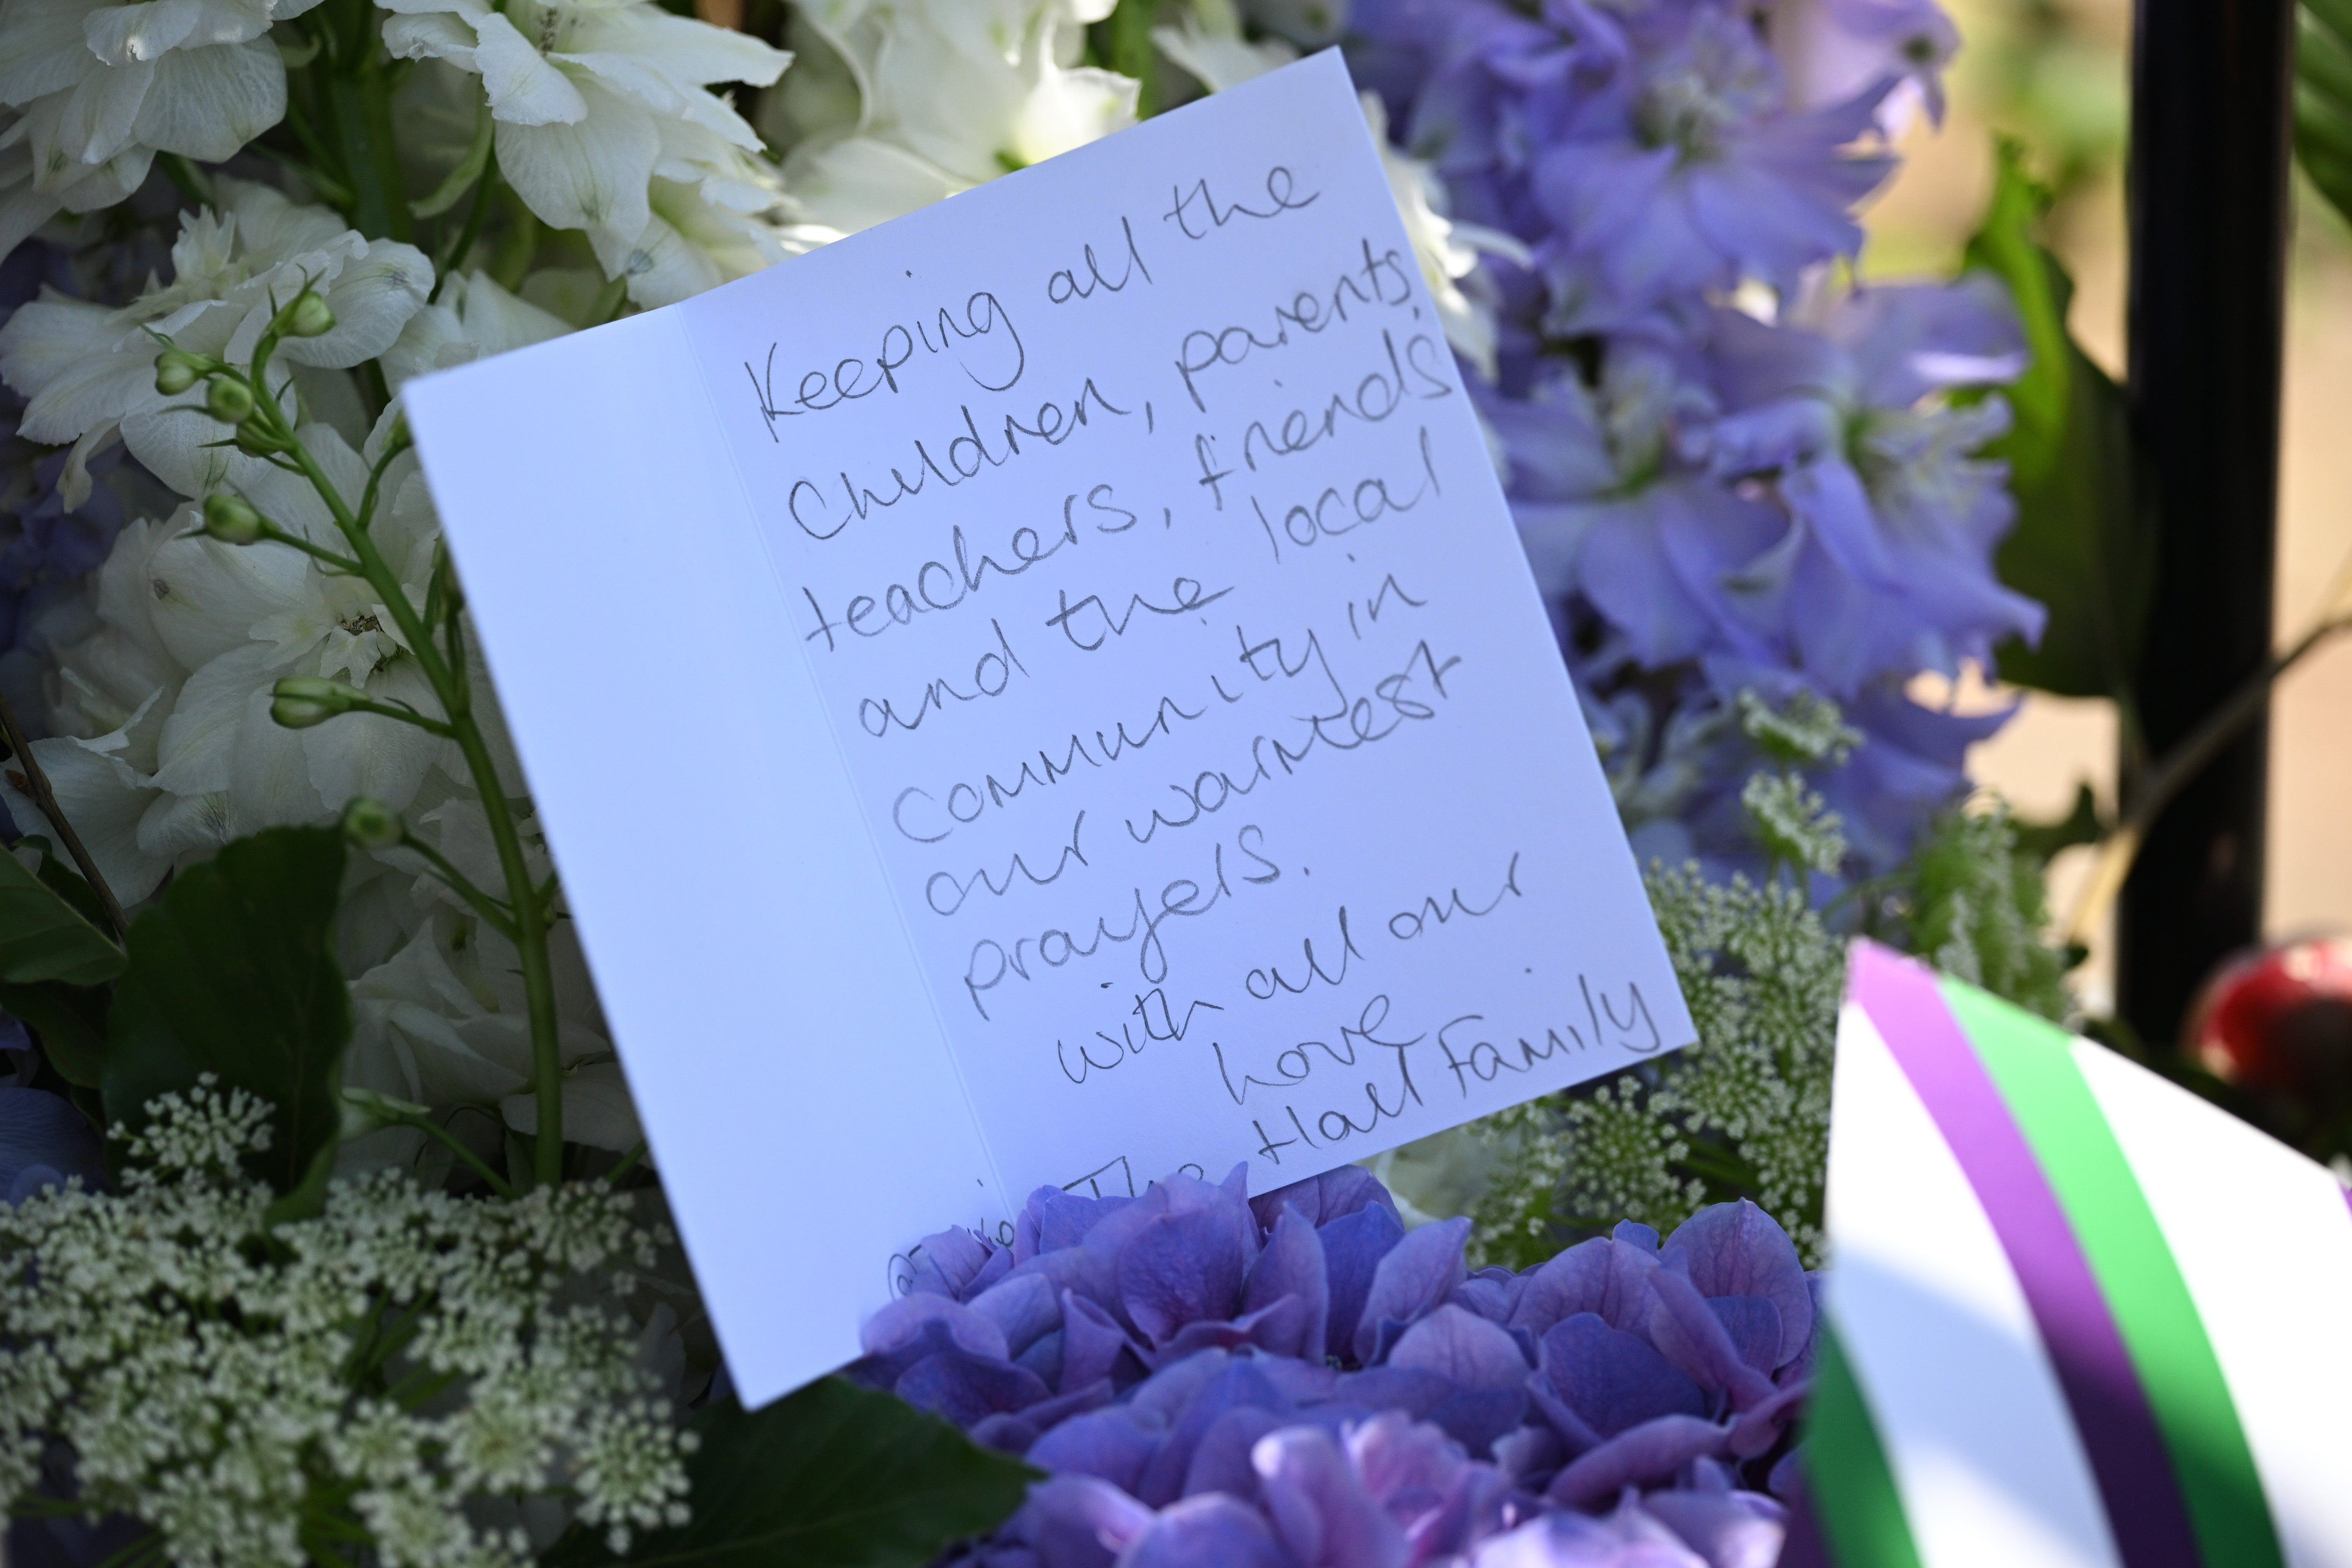 Keeping all the
Children, parents,
teachers, friends
and the local
community in
our warmest
prayers.
with all our
Love
The Hall Family